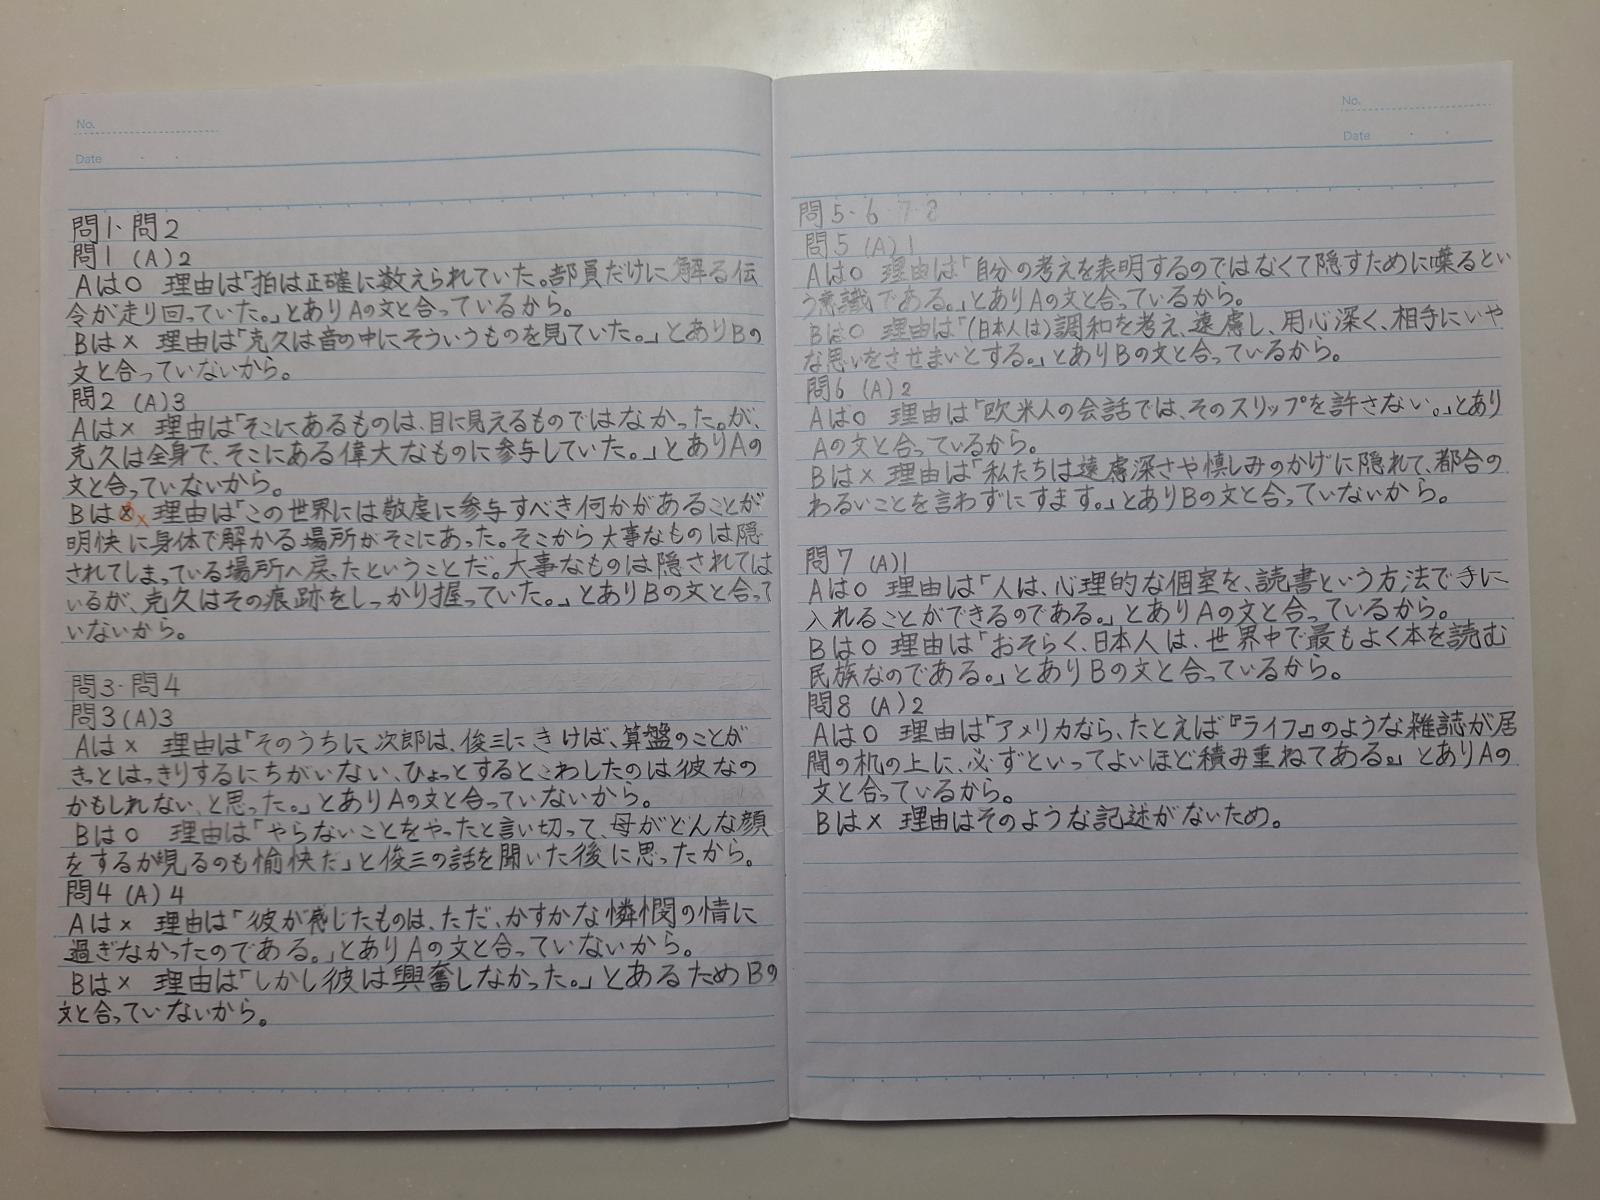 No.
Date
問1・問2
問1 (A)2
Aは○ 理由は「拍は正確に数えられていた。部員だけに解る伝
令が走り回っていた。」とありAの文と合っているから。
Bは× 理由は「克久は音の中にそういうものを見ていた。」とありBの
文と合っていないから。
問2 (A)3
Aは× 理由は「そこにあるものは、目に見えるものではなかった。が、
克久は全身で、そこにある偉大なものに参与していた。」とありAの
文と合っていないから。
Bは× 理由は「この世界には敬虔に参与すべき何かがあることが
明快に身体で解かる場所がそこにあった。そこから大事なものは隠
されてしまっている場所へ戻ったということだ。大事なものは隠されては
いるが、克久はその痕跡をしっかり握っていた。」とありBの文と合って
いないから。
問3・問4
問3(A)3
Aは× 理由は「そのうちに、次郎は、俊三にきけば、算盤のことが
きっとはっきりするにちがいない、ひょっとするとこわしたのは彼なの
かもしれない、と思った。」とありAの文と合っていないから。
Bは○ 理由は「やらないことをやったと言い切って、母がどんな顔
をするか見るのも愉快だ」と俊三の話を聞いた後に思ったから。
問4 (A)4
Aは× 理由は「彼が感じたものは、ただ、かすかな憐憫の情に
過ぎなかったのである。」とありAの文と合っていないから。
Bは× 理由は「しかし彼は興奮しなかった。」とあるためBの
文と合っていないから。
No.
Date
問5・6・7・8
問5 (A)1
Aは○ 理由は「自分の考えを表明するのではなくて隠すために喋るとい
う意識である。」とありAの文と合っているから。
Bは○ 理由は「(日本人は)調和を考え、遠慮し、用心深く、相手にいや
な思いをさせまいとする。」とありBの文と合っているから。
問6 (A)2
Aは○ 理由は「欧米人の会話では、そのスリップを許さない。」とあり
Aの文と合っているから。
Bは× 理由は「私たちは遠慮深さや慎しみのかげに隠れて、都合の
わるいことを言わずにすます。」とありBの文と合っていないから。
問7 (A)1
Aは○ 理由は「人は、心理的な個室を、読書という方法で手に
入れることができるのである。」とありAの文と合っているから。
Bは○ 理由は「おそらく、日本人は、世界中で最もよく本を読む
民族なのである。」とありBの文と合っているから。
問8 (A)2
Aは○ 理由は「アメリカなら、たとえば『ライフ』のような雑誌が居
間の机の上に、必ずといってよいほど積み重ねてある。」とありAの
文と合っているから。
Bは× 理由はそのような記述がないため。